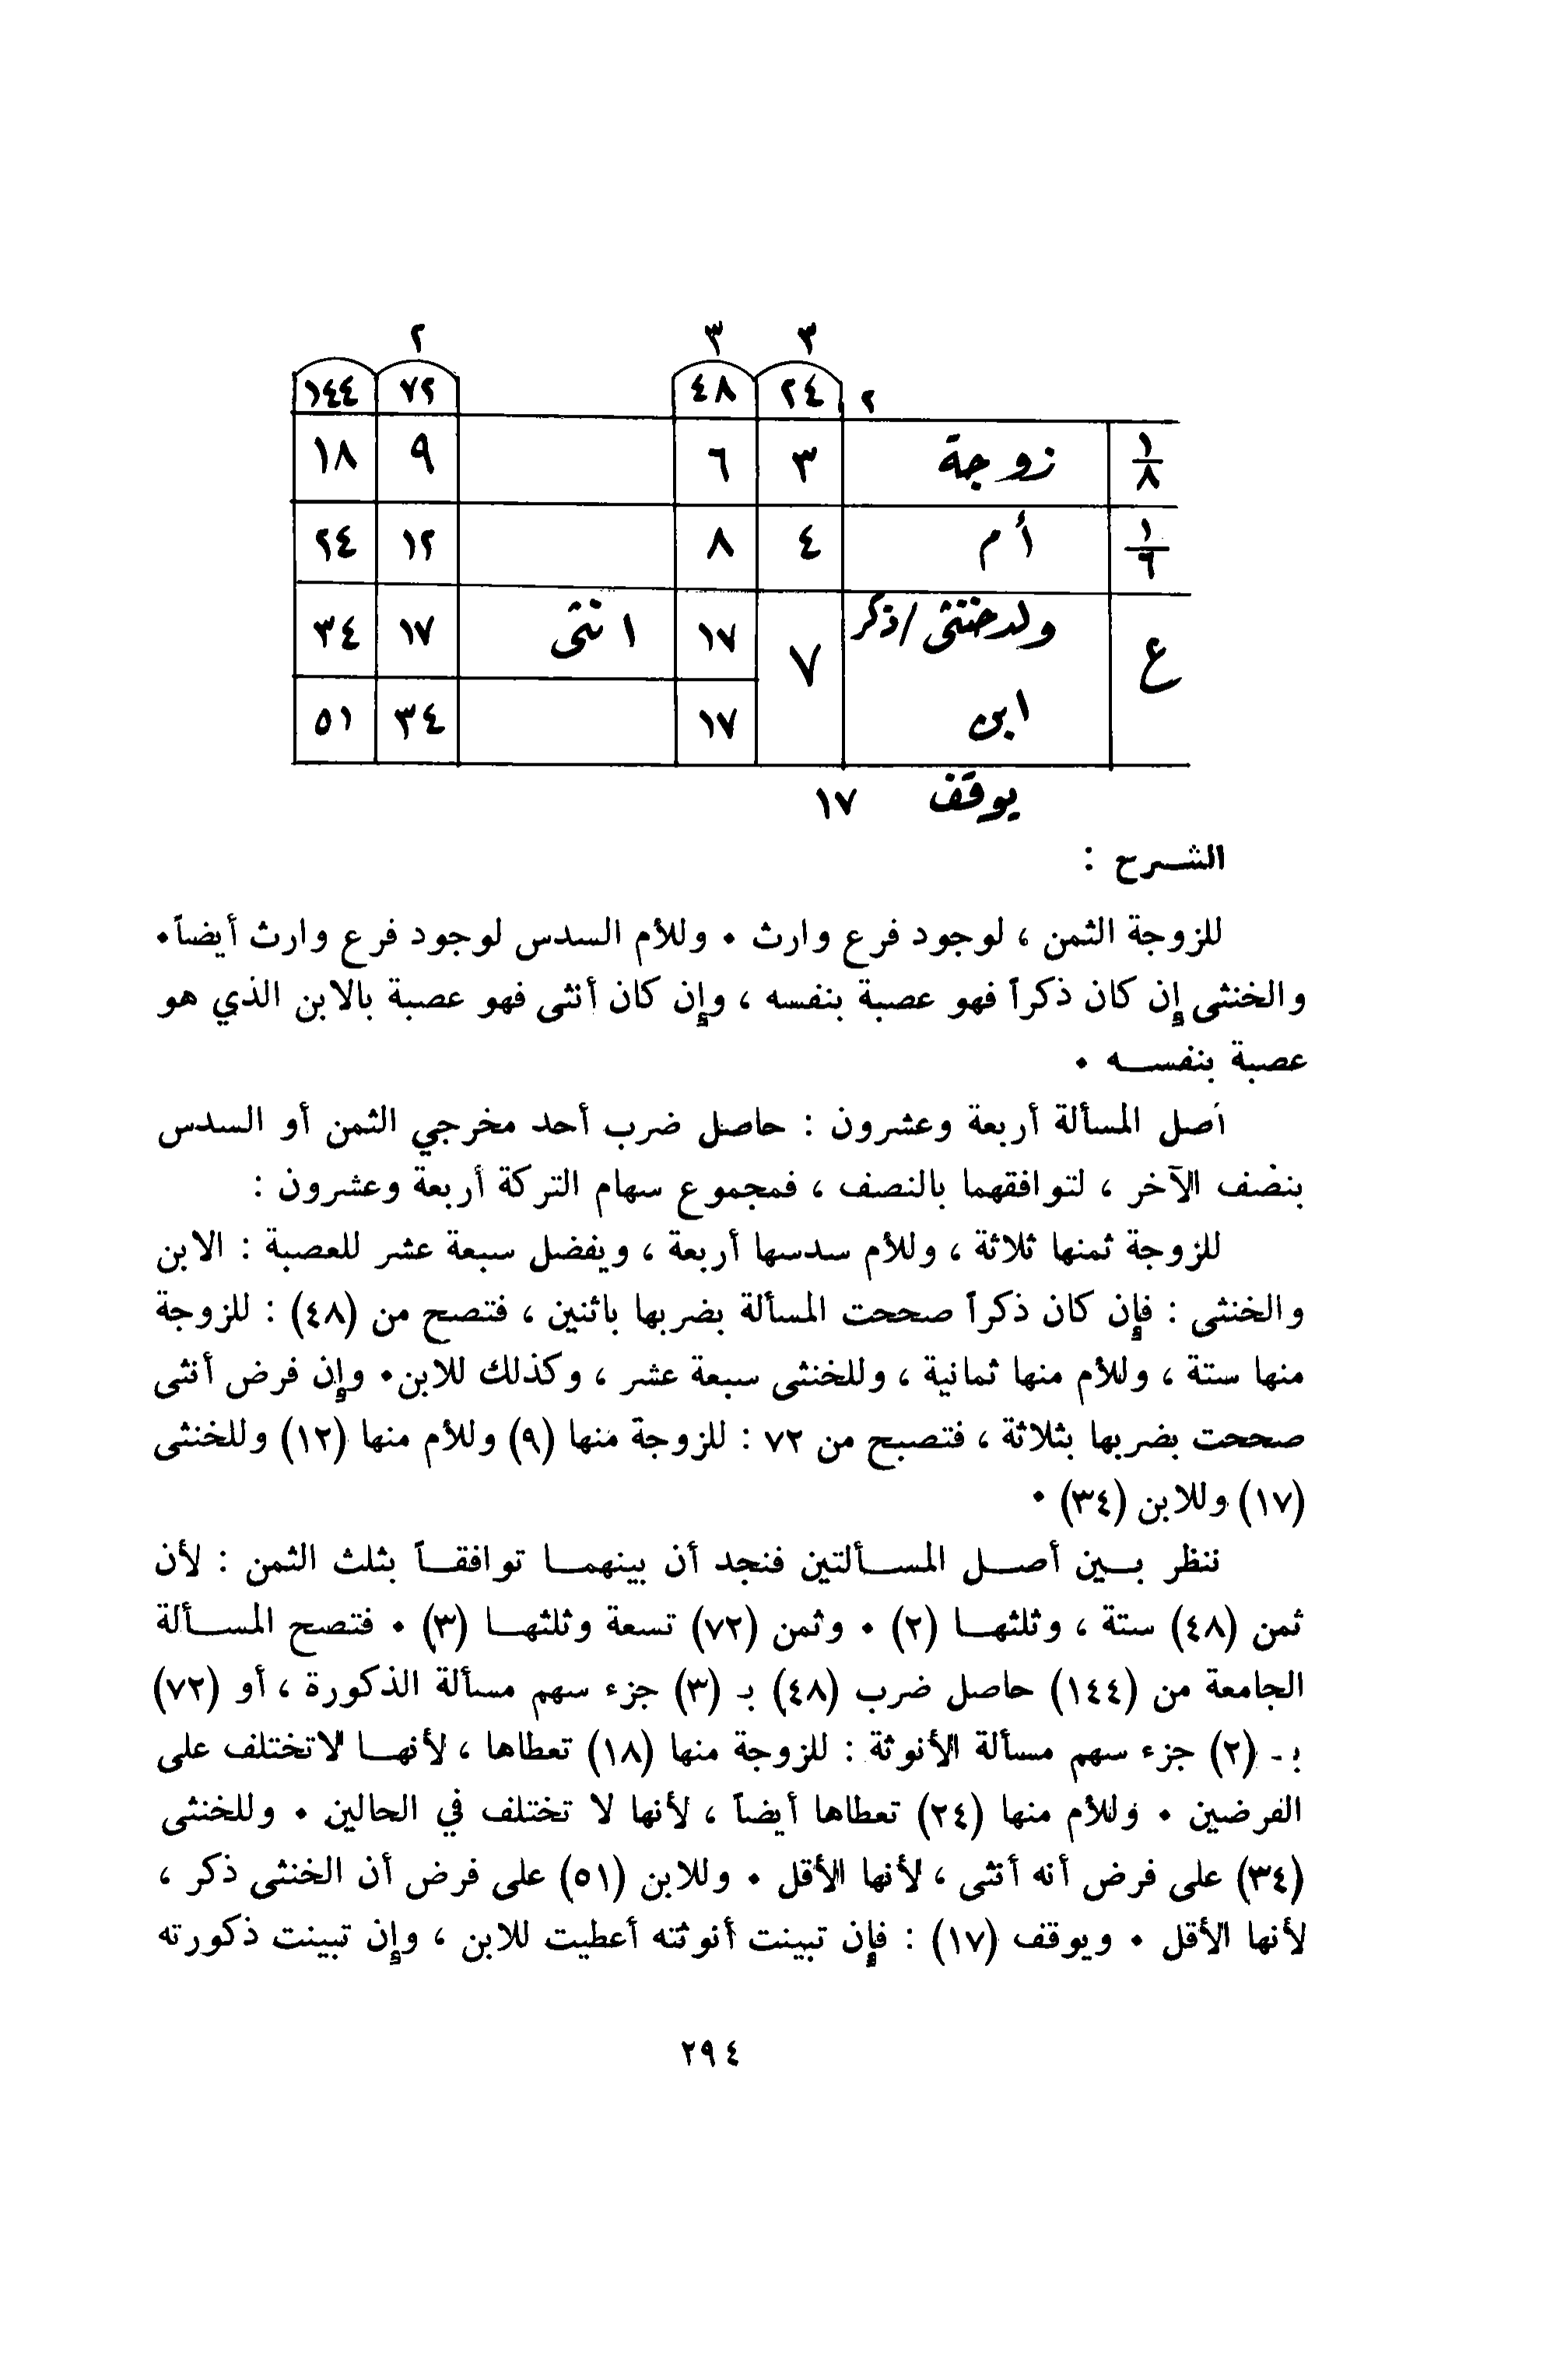 ٣ ٣ ٢
٢ ٢٤ ٤٨ ٧٢ ١٤٤
١/٨ زوجة ٣ ٦ ٩ ١٨
١/٦ أم ٤ ٨ ١٢ ٢٤
ع ولد خنثى / ذكر ٧ ١٧ انثى ١٧ ٣٤
ابن ١٧ ٣٤ ٥١
يوقف ١٧
الشرح :
للزوجة الثمن ، لوجود فرع وارث . وللأم السدس لوجود فرع وارث أيضاً .
والخنثى إن كان ذكراً فهو عصبة بنفسه ، وإن كان أنثى فهو عصبة بالابن الذي هو
عصبة بنفسه .
أصل المسألة أربعة وعشرون : حاصل ضرب أحد مخرجي الثمن أو السدس
بنصف الآخر ، لتوافقهما بالنصف ، فمجموع سهام التركة أربعة وعشرون :
للزوجة ثمنها ثلاثة ، وللأم سدسها أربعة ، ويفضل سبعة عشر للعصبة : الابن
والخنثى : فإن كان ذكراً صححت المسألة بضربها باثنين ، فتصح من (٤٨) : للزوجة
منها ستة ، وللأم منها ثمانية ، وللخنثى سبعة عشر ، وكذلك للابن . وإن فرض أنثى
صححت بضربها بثلاثة ، فتصبح من ٧٢ : للزوجة منها (٩) وللأم منها (١٢) وللخنثى
(١٧) وللابن (٣٤) .
ننظر بين أصل المسألتين فنجد أن بينهما توافقاً بثلث الثمن : لأن
ثمن (٤٨) ستة ، وثلثها (٢) . وثمن (٧٢) تسعة وثلثها (٣) . فتصح المسألة
الجامعة من (١٤٤) حاصل ضرب (٤٨) بـ (٣) جزء سهم مسألة الذكورة ، أو (٧٢)
بـ (٢) جزء سهم مسألة الأنوثة : للزوجة منها (١٨) تعطاها ، لأنها لا تختلف على
الفرضين . وللأم منها (٢٤) تعطاها أيضاً ، لأنها لا تختلف في الحالين . وللخنثى
(٣٤) على فرض أنه أنثى ، لأنها الأقل . وللابن (٥١) على فرض أن الخنثى ذكر ،
لأنها الأقل . ويوقف (١٧) : فإن تبينت أنوثته أعطيت للابن ، وإن تبينت ذكورته
٢٩٤